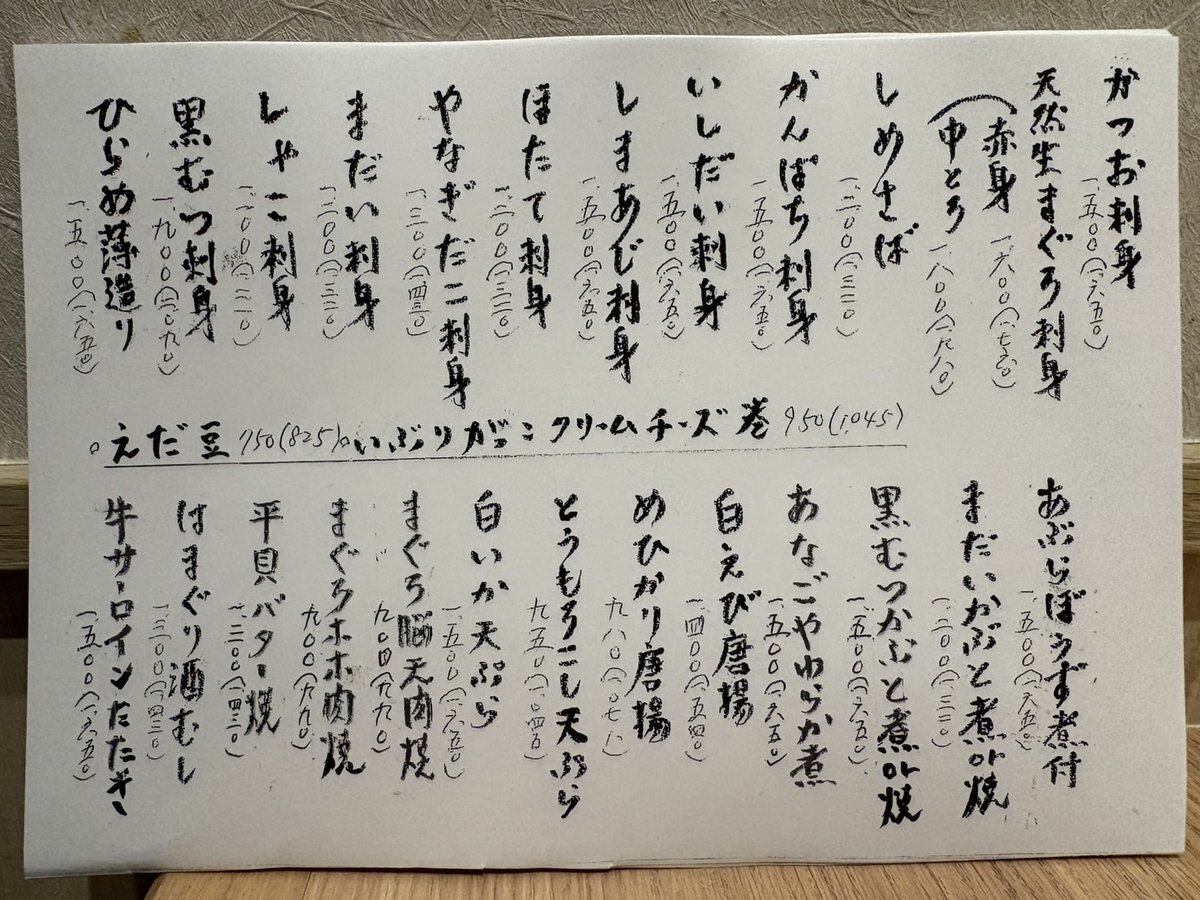 かつお刺身
一、五〇〇(一、六五〇)
天然生まぐろ刺身
赤身
一、六〇〇(一、七六〇)
中とろ
一、八〇〇(一、九八〇)
しめさば
一、二〇〇(一、三二〇)
かんぱち刺身
一、五〇〇(一、六五〇)
いしだい刺身
一、五〇〇(一、六五〇)
しまあじ刺身
一、五〇〇(一、六五〇)
ほたて刺身
一、二〇〇(一、三二〇)
やなぎだこ刺身
一、三〇〇(一、四三〇)
まだい刺身
一、二〇〇(一、三二〇)
しゃこ刺身
一、一〇〇(一、二一〇)
黒むつ刺身
一、九〇〇(二、〇九〇)
ひらめ薄造り
一、五〇〇(一、六五〇)
。えだ豆 750(825)。いぶりがっこクリームチーズ巻 950(1,045)
あぶらぼうず煮付
一、五〇〇(一、六五〇)
まだいかぶと煮or焼
一、二〇〇(一、三二〇)
黒むつかぶと煮or焼
一、五〇〇(一、六五〇)
あなごやわらか煮
一、五〇〇(一、六五〇)
白えび唐揚
一、四〇〇(一、五四〇)
めひかり唐揚
九八〇(一、〇七八)
とうもろこし天ぷら
九五〇(一、〇四五)
白いか天ぷら
一、五〇〇(一、六五〇)
まぐろ脳天肉焼
九〇〇(九九〇)
まぐろホホ肉焼
九〇〇(九九〇)
平貝バター焼
一、三〇〇(一、四三〇)
はまぐり酒むし
一、三〇〇(一、四三〇)
牛サーロインたたき
一、五〇〇(一、六五〇)